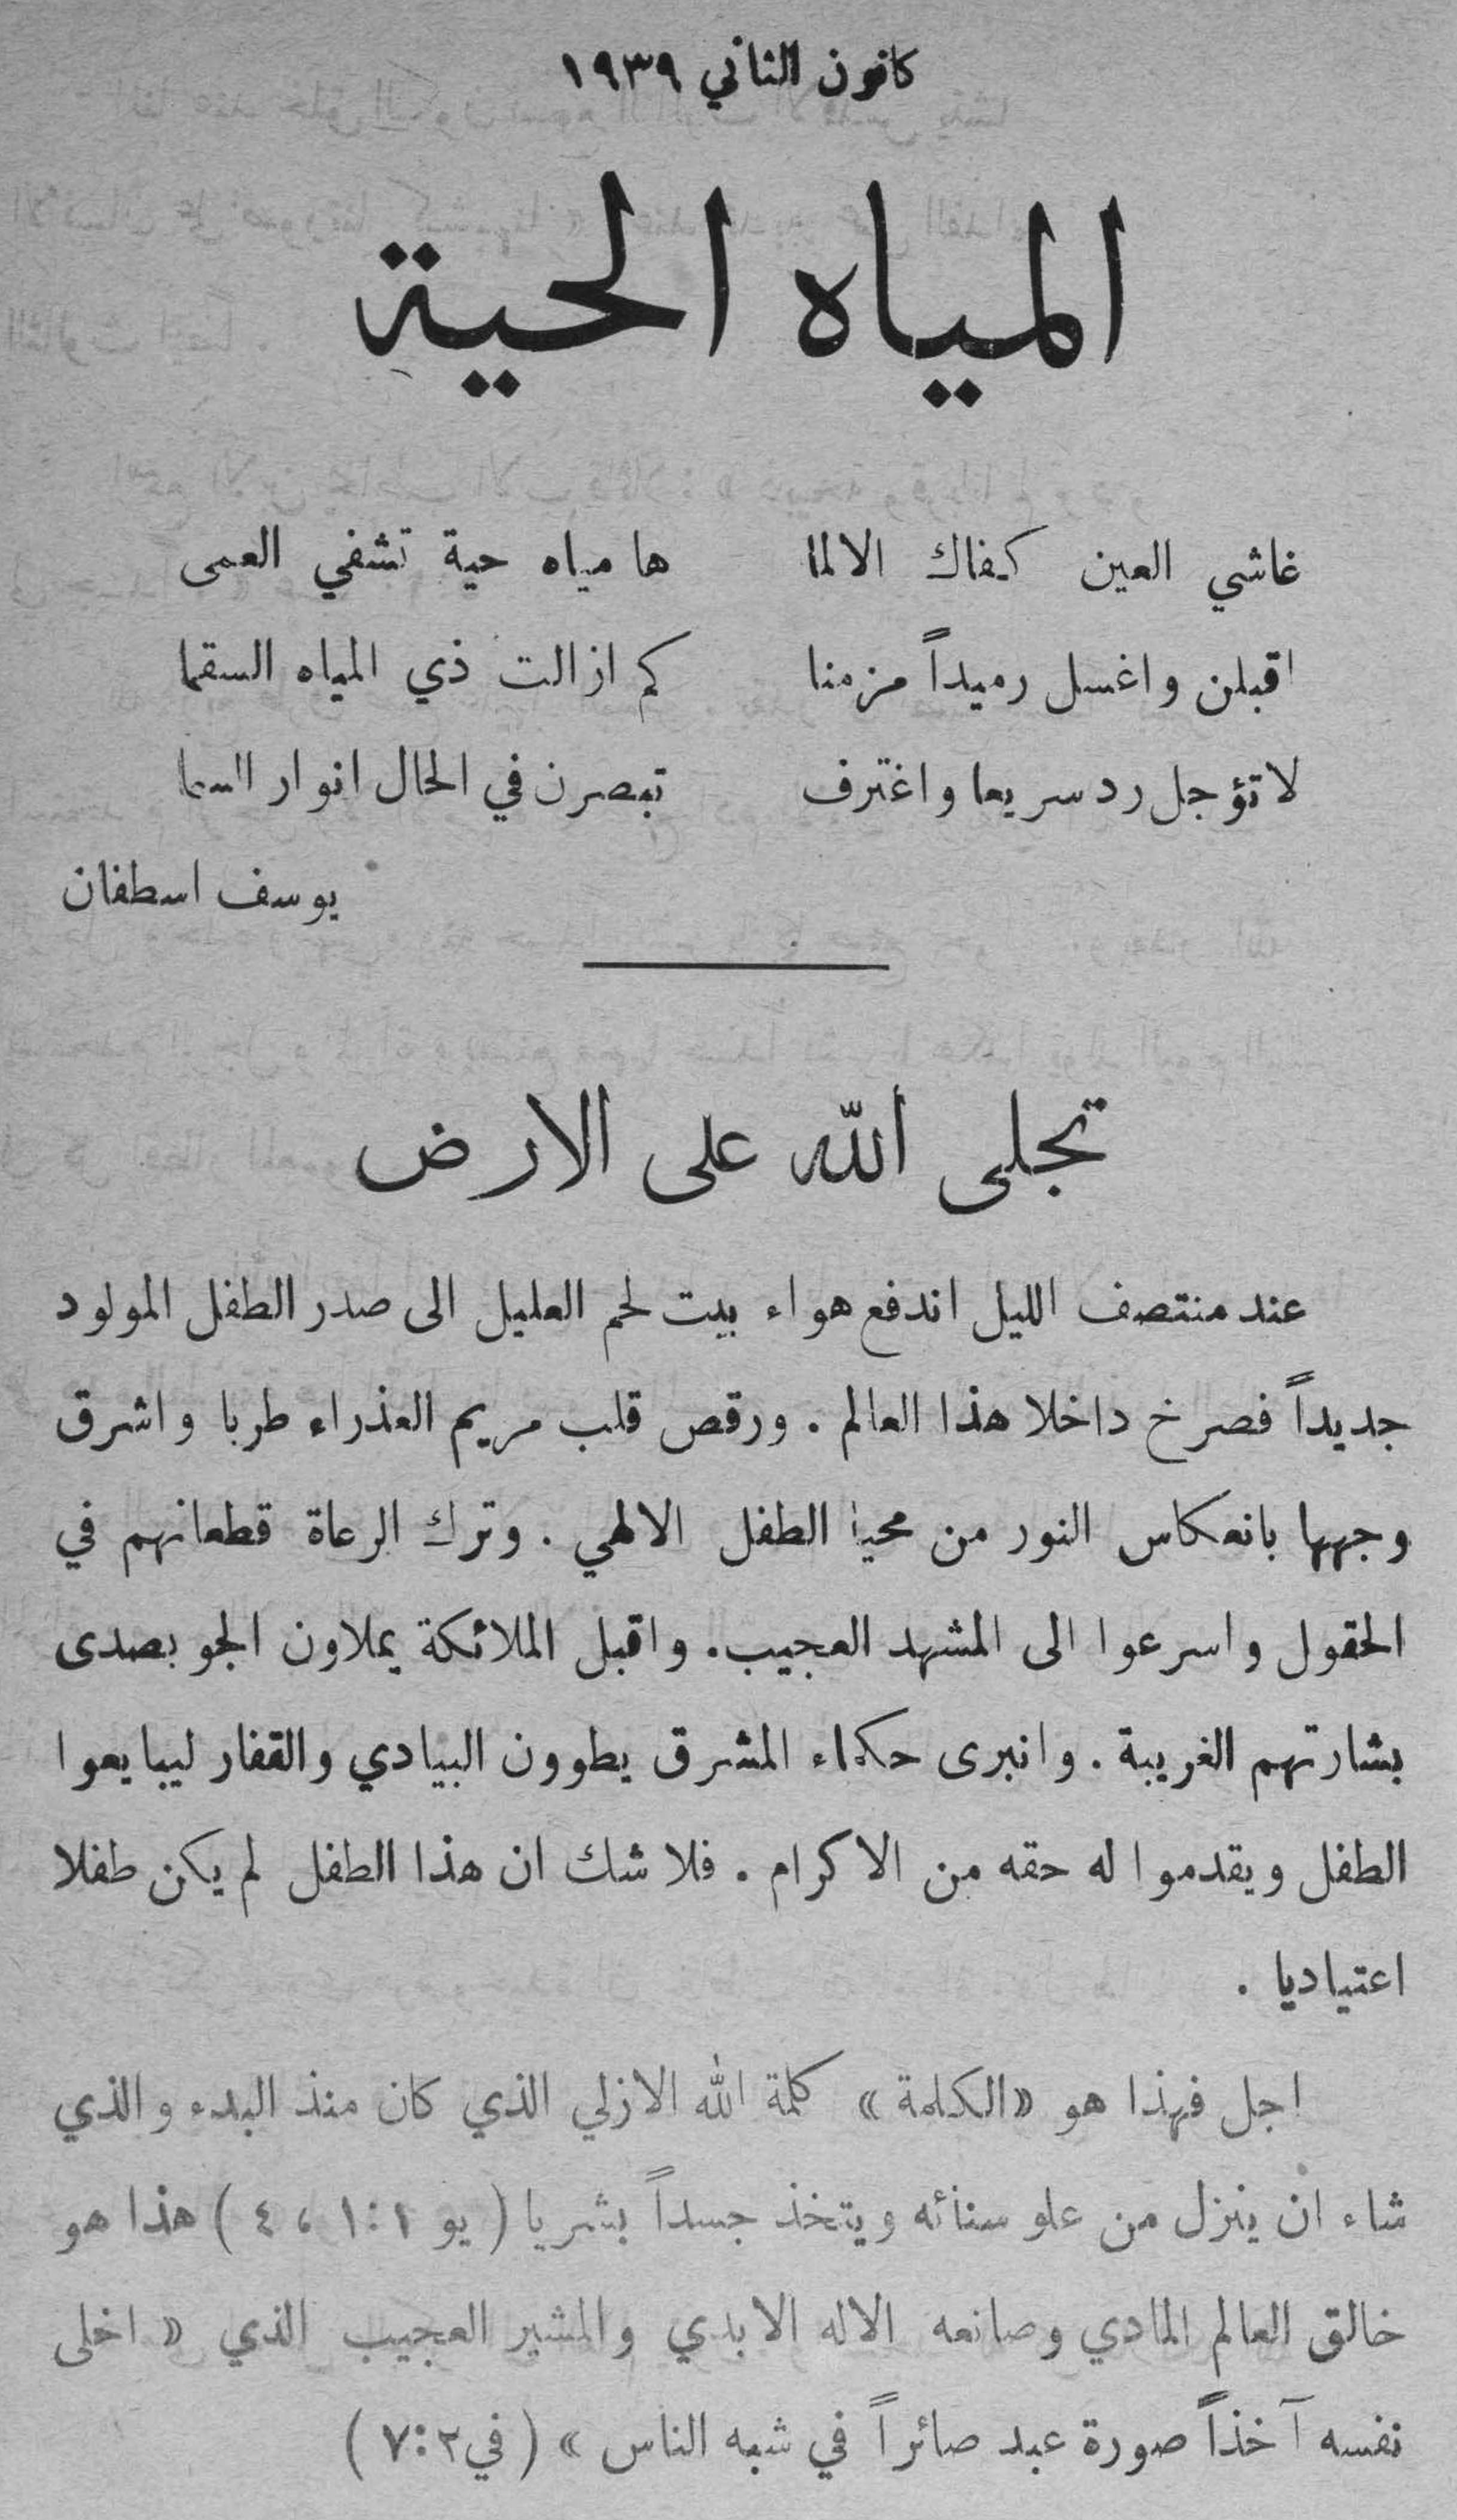 كانون الثاني ١٩٣٩
المياه الحية
غاشي العين كفاك الالما ها مياه حية تشفي العمى
اقبلن واغسل رميداً مزمنا كم ازالت ذي المياه السقما
لا تؤجل رد سريعا واغترف تبصرن في الحال انوار السما
يوسف اسطفان
تجلى الله على الارض
عند منتصف الليل اندفع هواء بيت لحم العليل الى صدر الطفل المولود
جديداً فصرخ داخلا هذا العالم . ورقص قلب مريم العذراء طربا واشرق
وجهها بانعكاس النور من محيا الطفل الالهي . وترك الرعاة قطعانهم في
الحقول واسرعوا الى المشهد العجيب. واقبل الملائكة يملاون الجو بصدى
بشارتهم الغريبة . وانبرى حكماء المشرق يطوون البيادي والقفار ليبايعوا
الطفل ويقدموا له حقه من الاكرام . فلا شك ان هذا الطفل لم يكن طفلا
اعتياديا .
اجل فهذا هو «الكلمة» كلمة الله الازلي الذي كان منذ البدء والذي
شاء ان ينزل من علو سنائه ويتخذ جسداً بشريا ( يو ١:١ ، ٤ ) هذا هو
خالق العالم المادي وصانعه الاله الابدي والمشير العجيب الذي « اخلى
نفسه آخذاً صورة عبد صائراً في شبه الناس » ( في ٢:٧ )